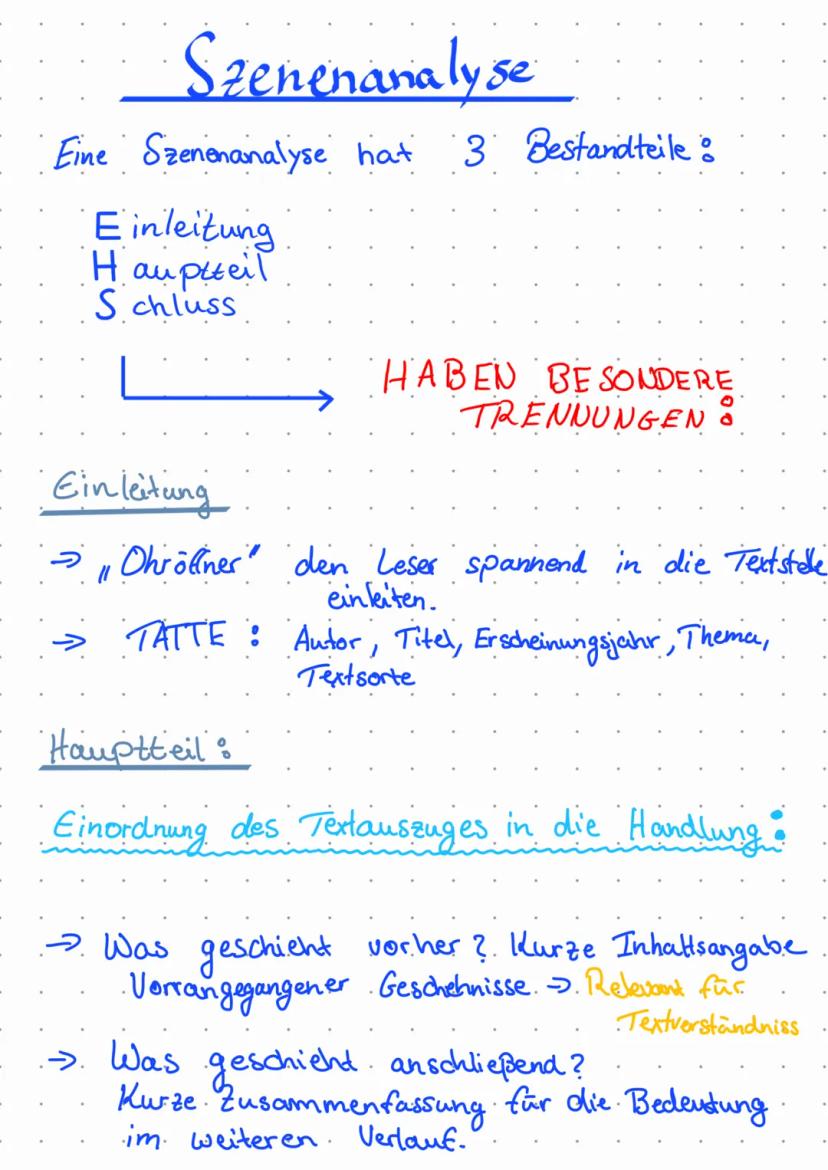 Szenenanalyse
Eine Szenenanalyse hat 3 Bestandteile:
Einleitung
Hauptteil
Schluss
HABEN BESONDERE
TRENNUNGEN:
Einleitung
→ „Ohröffner" den Leser spannend in die Textstelle
einleiten.
→ TATTE: Autor, Titel, Erscheinungsjahr, Thema,
Textsorte
Hauptteil:
Einordnung des Textauszuges in die Handlung:
→ Was geschieht vorher? Kurze Inhaltsangabe
Vorrangegangener Geschehnisse → Relevant für
Textverständniss
→ Was geschieht anschließend?
Kurze Zusammenfassung für die Bedeutung
im weiteren Verlauf.